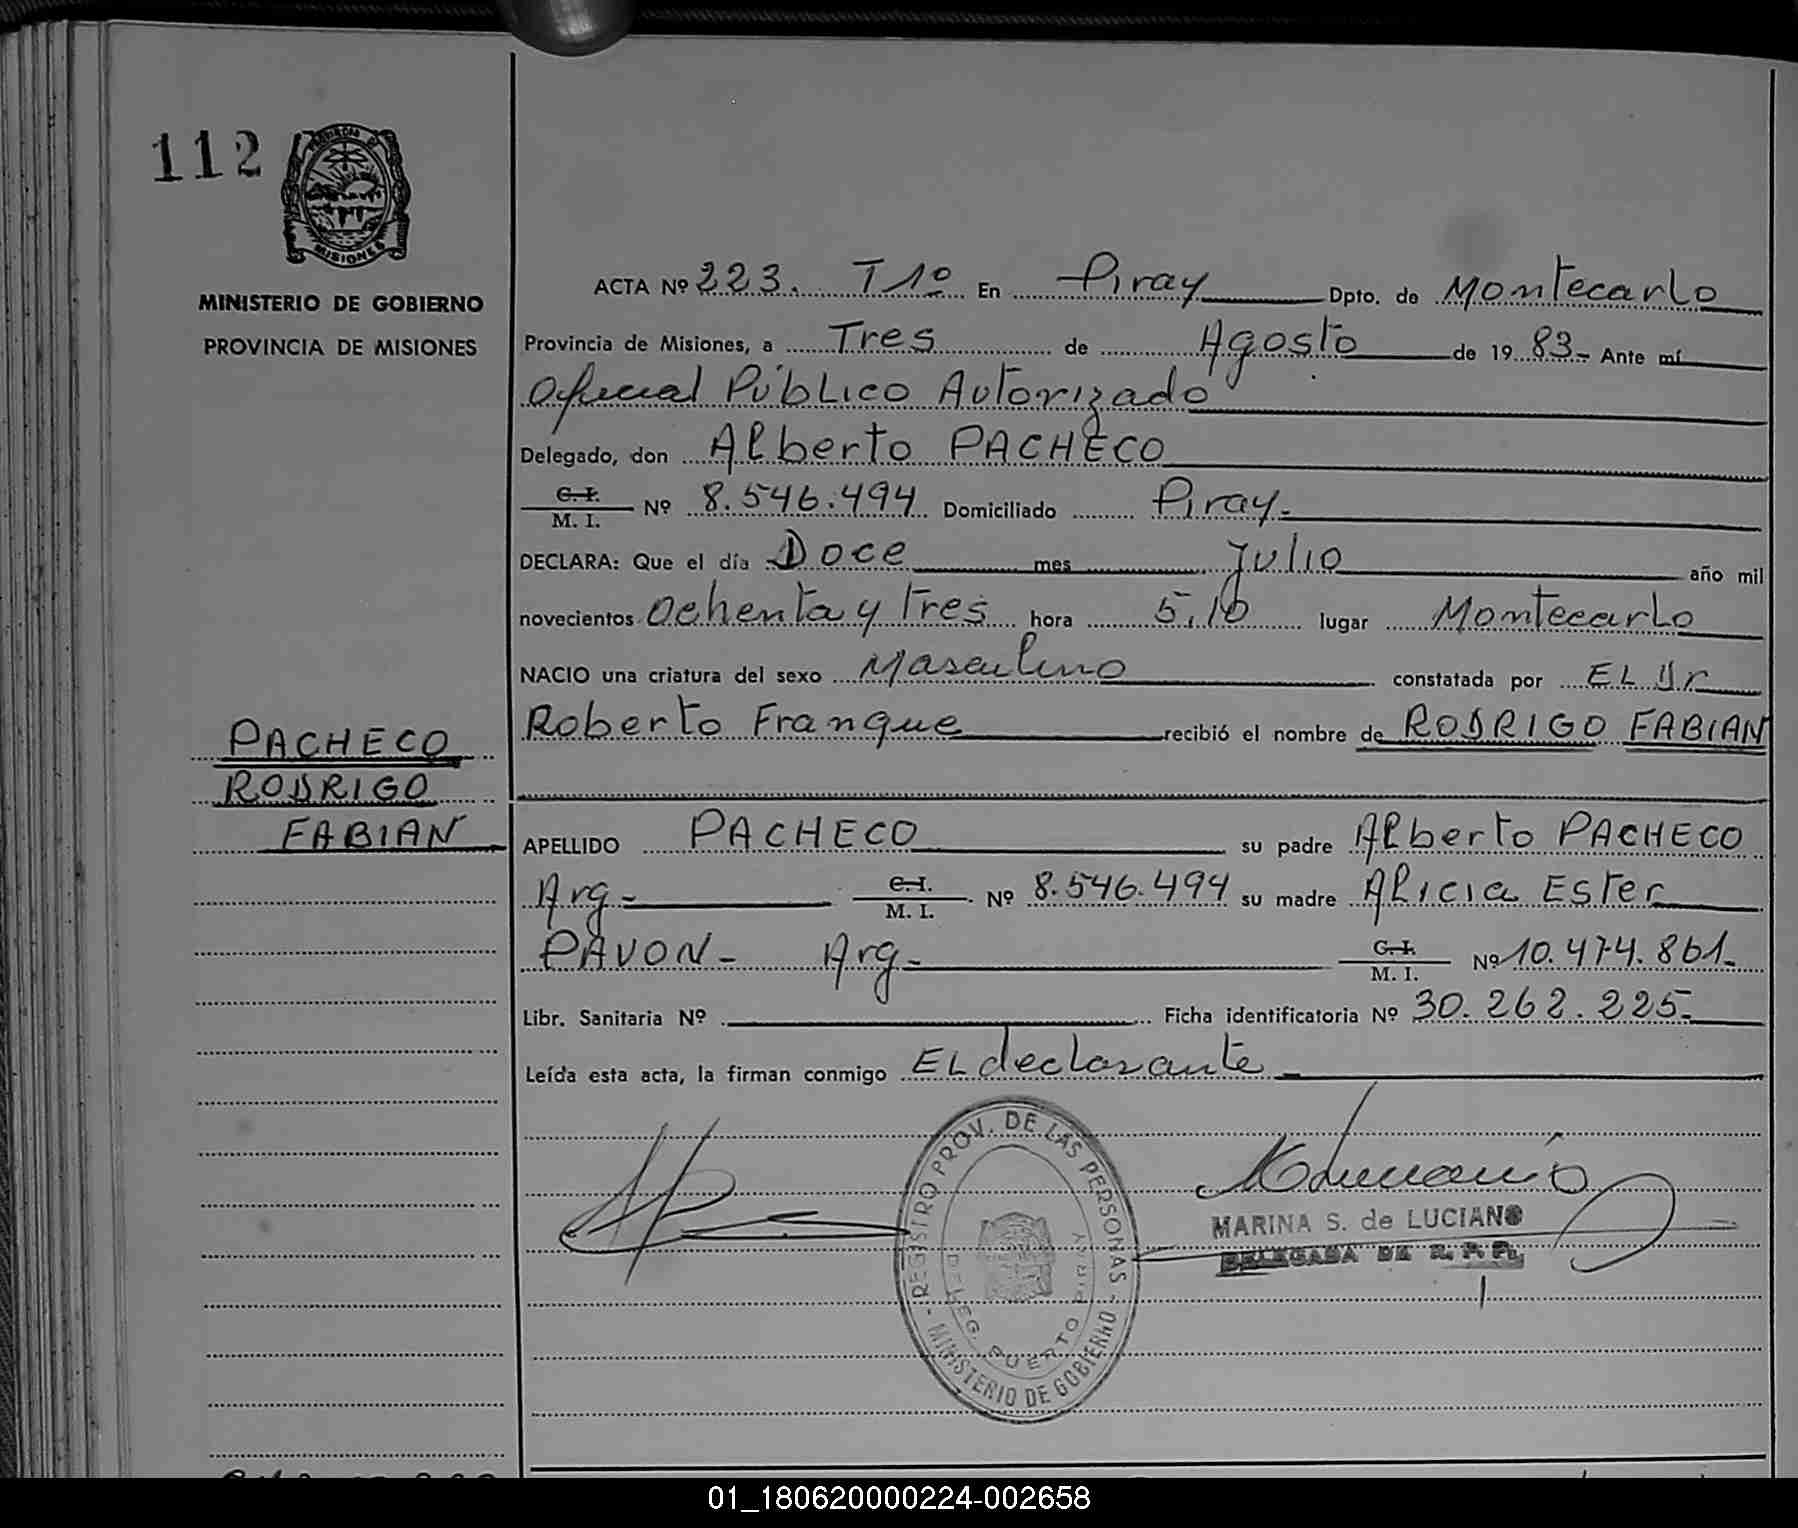 112
PROVINCIA DE
MISIONES
MINISTERIO DE GOBIERNO
PROVINCIA DE MISIONES
PACHECO
RODRIGO
FABIAN
ACTA Nº 223. T 1º En Piray Dpto. de Montecarlo
Provincia de Misiones, a Tres de Agosto de 19 83- Ante mí
Oficial Público Autorizado
Delegado, don Alberto PACHECO
C. I.
M. I. Nº 8.546.494 Domiciliado Piray.
DECLARA: Que el día Doce mes Julio año mil
novecientos Ochenta y Tres hora 5,10 lugar Montecarlo
NACIO una criatura del sexo Masculino constatada por EL Dr
Roberto Franque recibió el nombre de RODRIGO FABIAN
APELLIDO PACHECO su padre Alberto PACHECO
Arg- C. I.
M. I. Nº 8.546.494 su madre Alicia Ester
PAVON- Arg- C. I.
M. I. Nº 10.474.861-
Libr. Sanitaria Nº Ficha identificatoria Nº 30.262.225-
Leída esta acta, la firman conmigo EL declarante
- REGISTRO PROV. DE LAS PERSONAS -
MINISTERIO DE GOBIERNO
DELEG. PUERTO PIRAY
MARINA S. de LUCIANO
DELEGADA DE R. P. P.
01_180620000224-002658